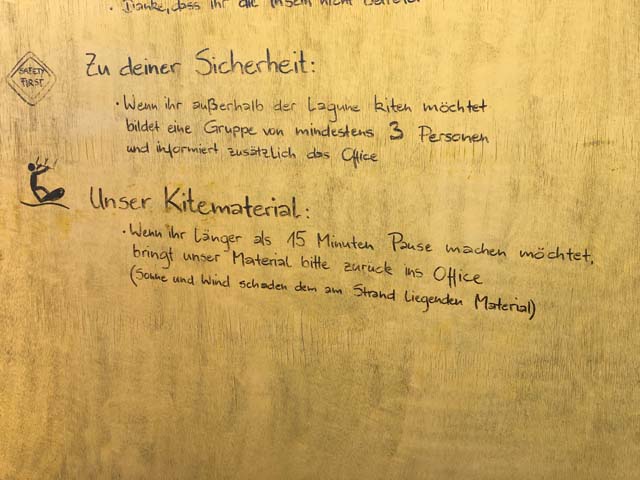 · Danke, dass ihr die Inseln nicht
Zu deiner Sicherheit:
SAFETY
FIRST
· Wenn ihr außerhalb der Lagune kiten möchtet
bildet eine Gruppe von mindestens 3 Personen
und informiert zusätzlich das Office
Unser Kitematerial:
· Wenn ihr Länger als 15 Minuten Pause machen möchtet,
bringt unser Material bitte zurück ins Office
(Sonne und Wind schaden dem am Strand liegenden Material)